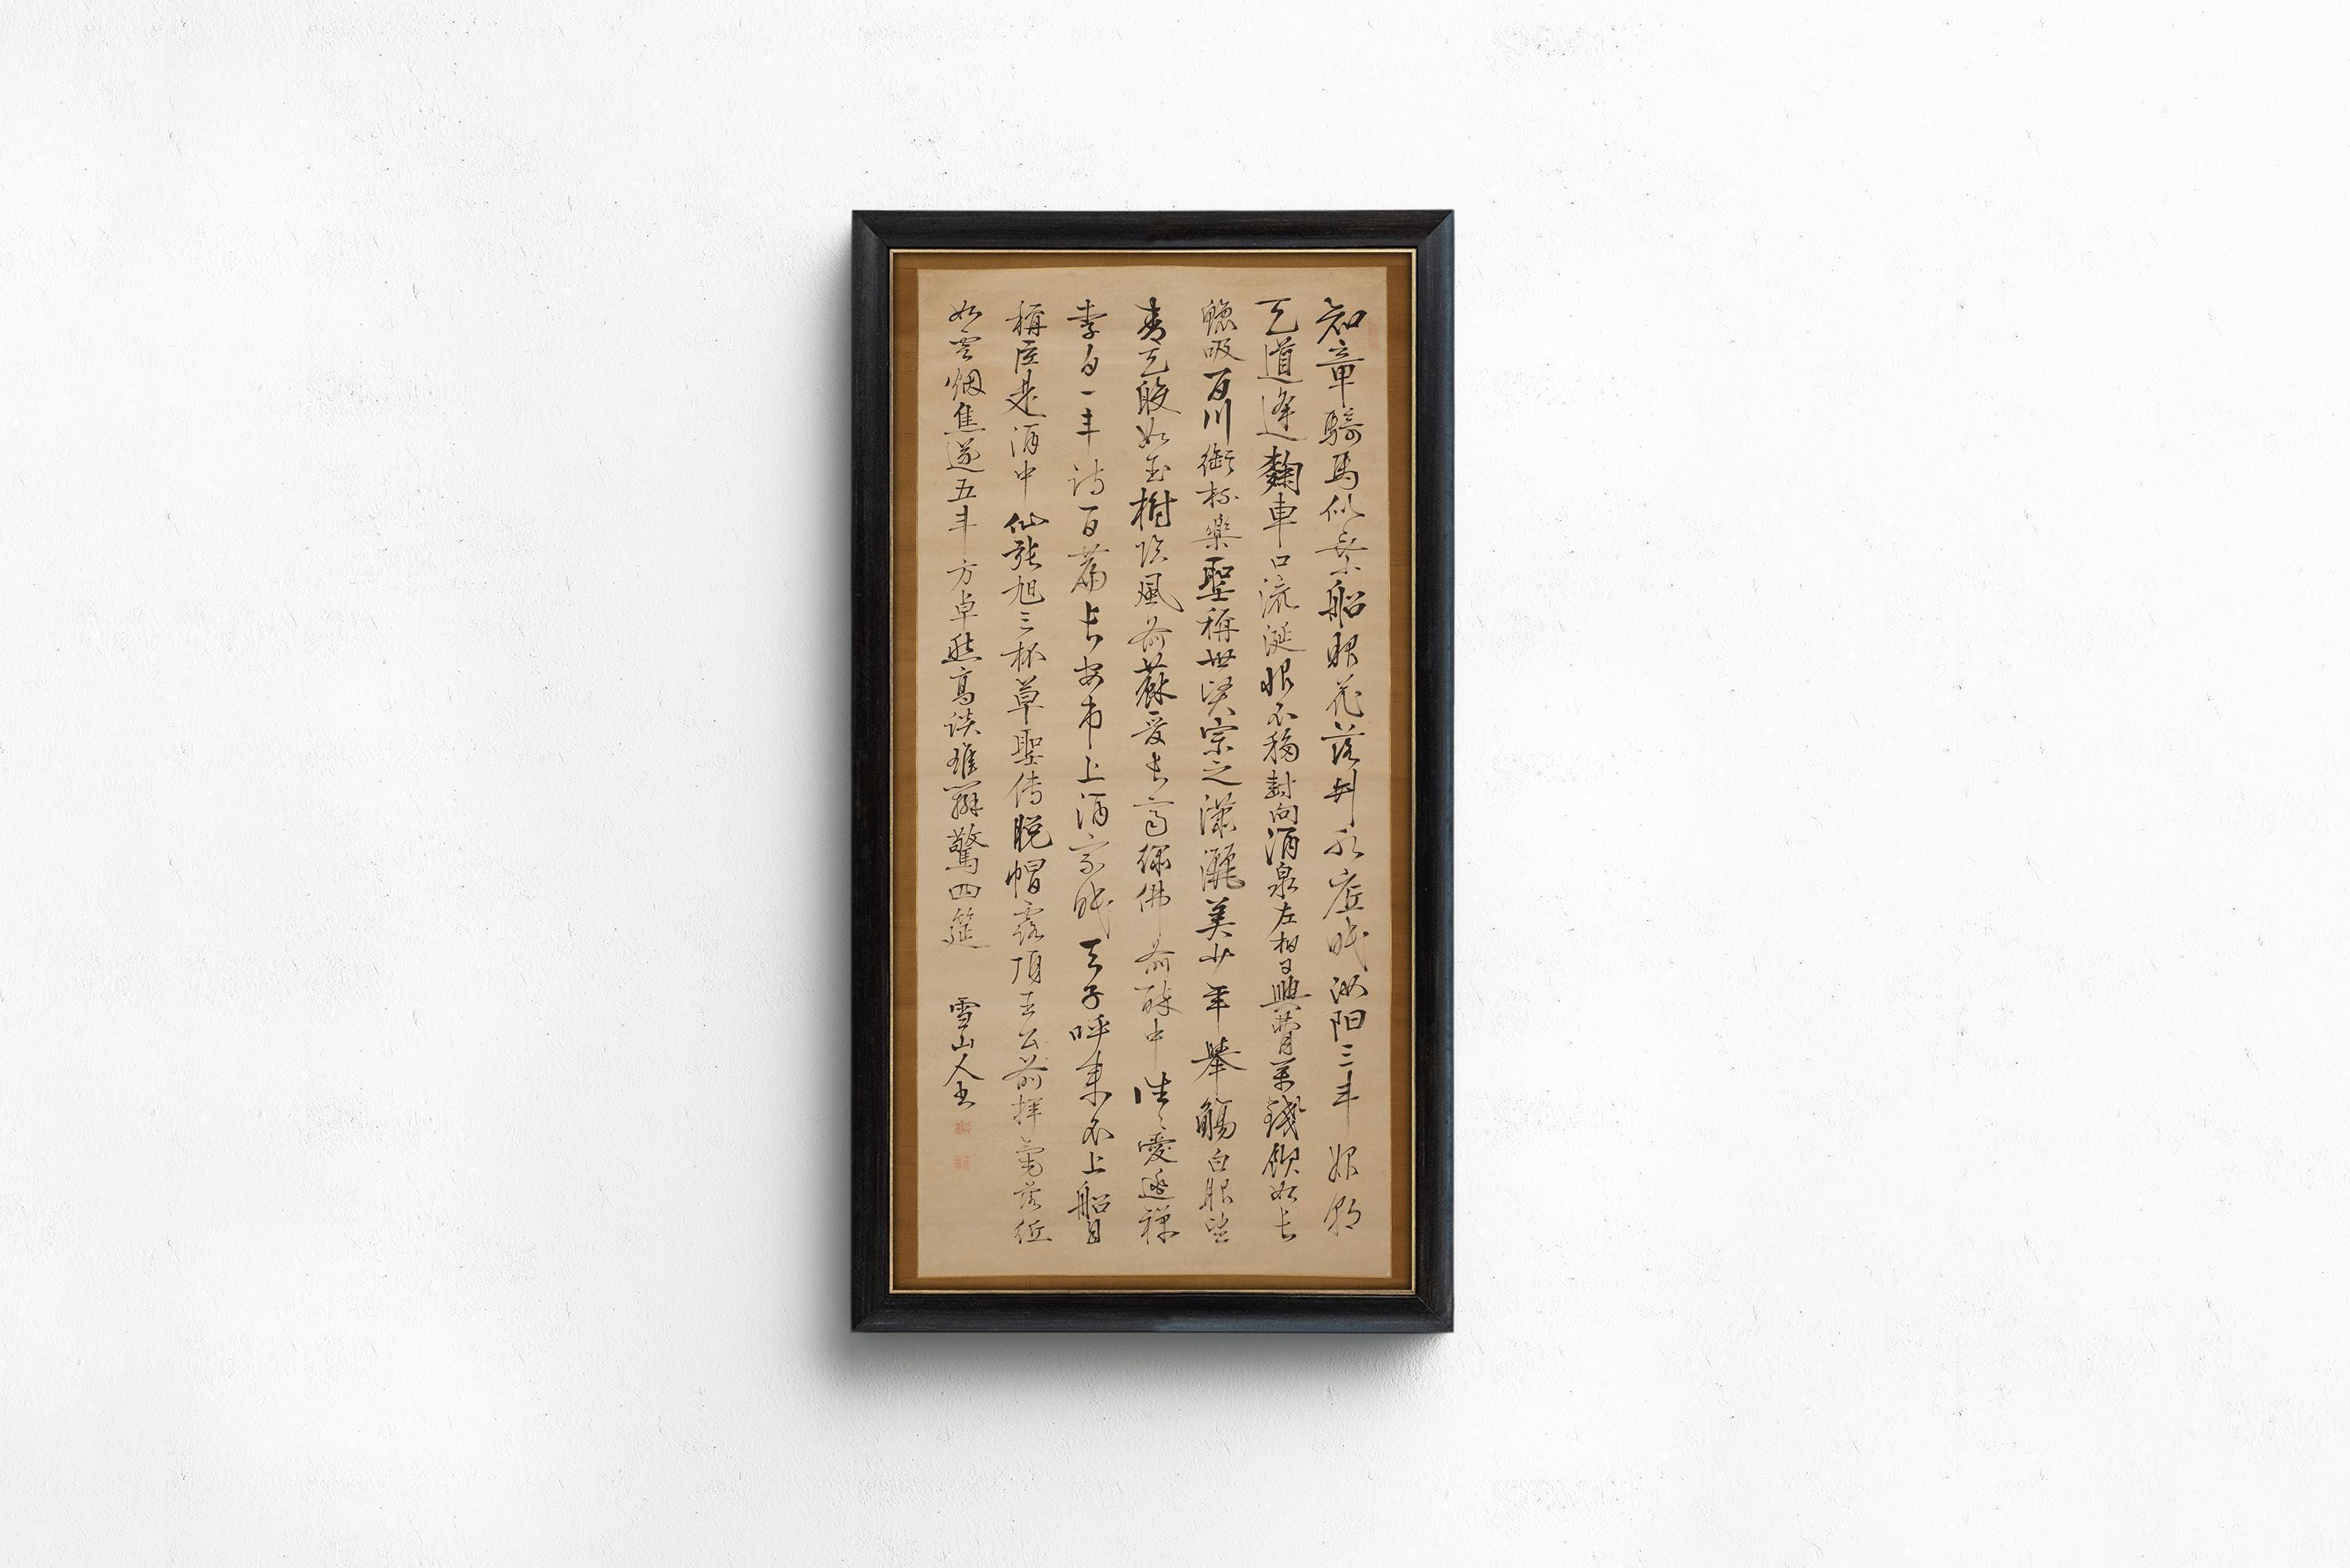 知章騎馬似乘船眼花落井水底眠汝陽三斗始朝
天道逢麴車口流涎恨不移封向酒泉左相日興費萬錢飲如長
鯨吸百川銜杯樂聖稱世賢宗之瀟灑美少年舉觴白眼望
青天皎如玉樹臨風前蘇晉長齋繡佛前醉中往々愛逃禪
李白一斗詩百篇長安市上酒家眠天子呼來不上船自
稱臣是酒中仙張旭三杯草聖傳脫帽露頂王公前揮毫落紙
如雲烟焦遂五斗方卓然高談雄辯驚四筵 雪山人書